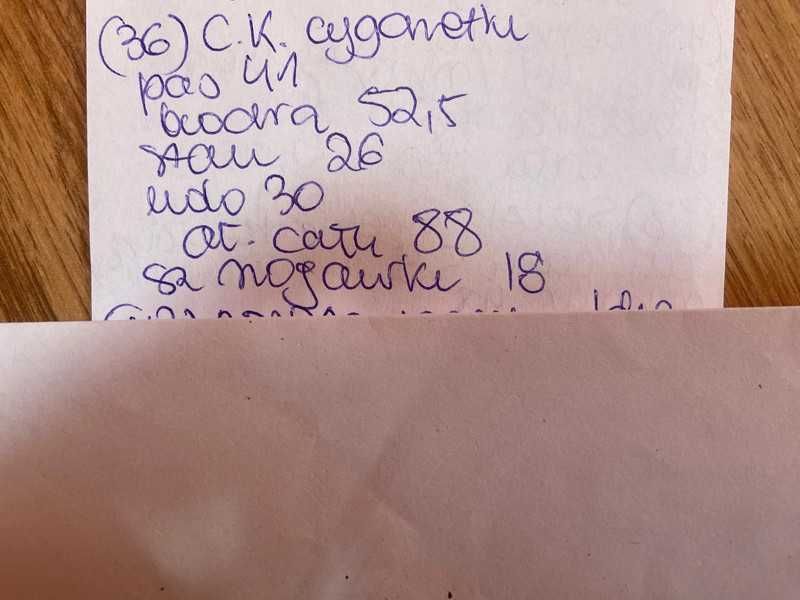 (36) C.K. cygaretki
pas 41
biodra 52,5
stan 26
udo 30
dł. cału 88
sz nogawki 18